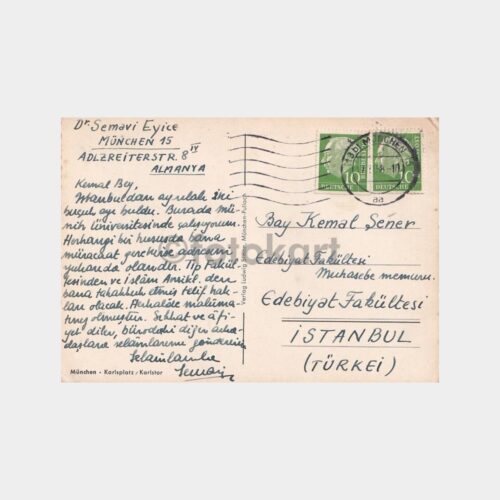 Dr. Semavi Eyice
MÜNCHEN 15
ADLZREITERSTR. 8 IV
ALMANYA
Kemal Bey,
İstanbuldan ayrılalı iki
buçuk ayı buldu. Burada mü-
nih Üniversitesinde çalışıyorum.
Herhangi bir hususda bana
müracaat gerekirse adresim
yukarda olandır. Tıp Fakül-
tesinden ve İslâm Ansikl. den
bana tahakkuk etmiş telif hak-
ları olacak. Herhalde malûma-
tınız olmuştur. Sıhhat ve âfi-
yet diler, bürodaki diğer arka-
daşlara selâmlarımı gönderirim
Selâmlarımla
Semavi
München - Karlsplatz / Karlstor
Verlag Ludwig München-Pullach
10
DEUTSCHE
10
DEUTSCHE
aa
Bay Kemal Şener
Edebiyat Fakültesi
Muhasebe memuru
Edebiyat Fakültesi
İSTANBUL
(TÜRKEI)
©fotokart